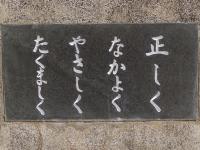 正しく
なかよく
やさしく
たくましく